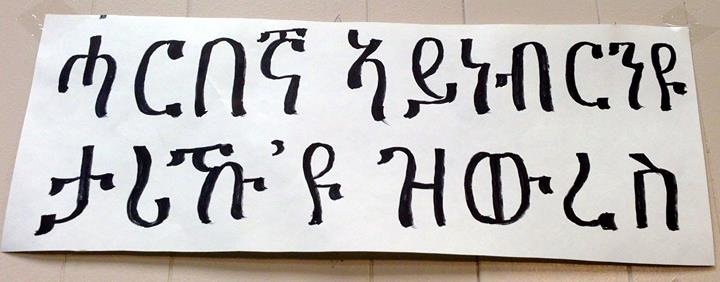 ሓርበኛ ኣይነብርንዩ
ታሪኹ'ዩ ዝውረስ